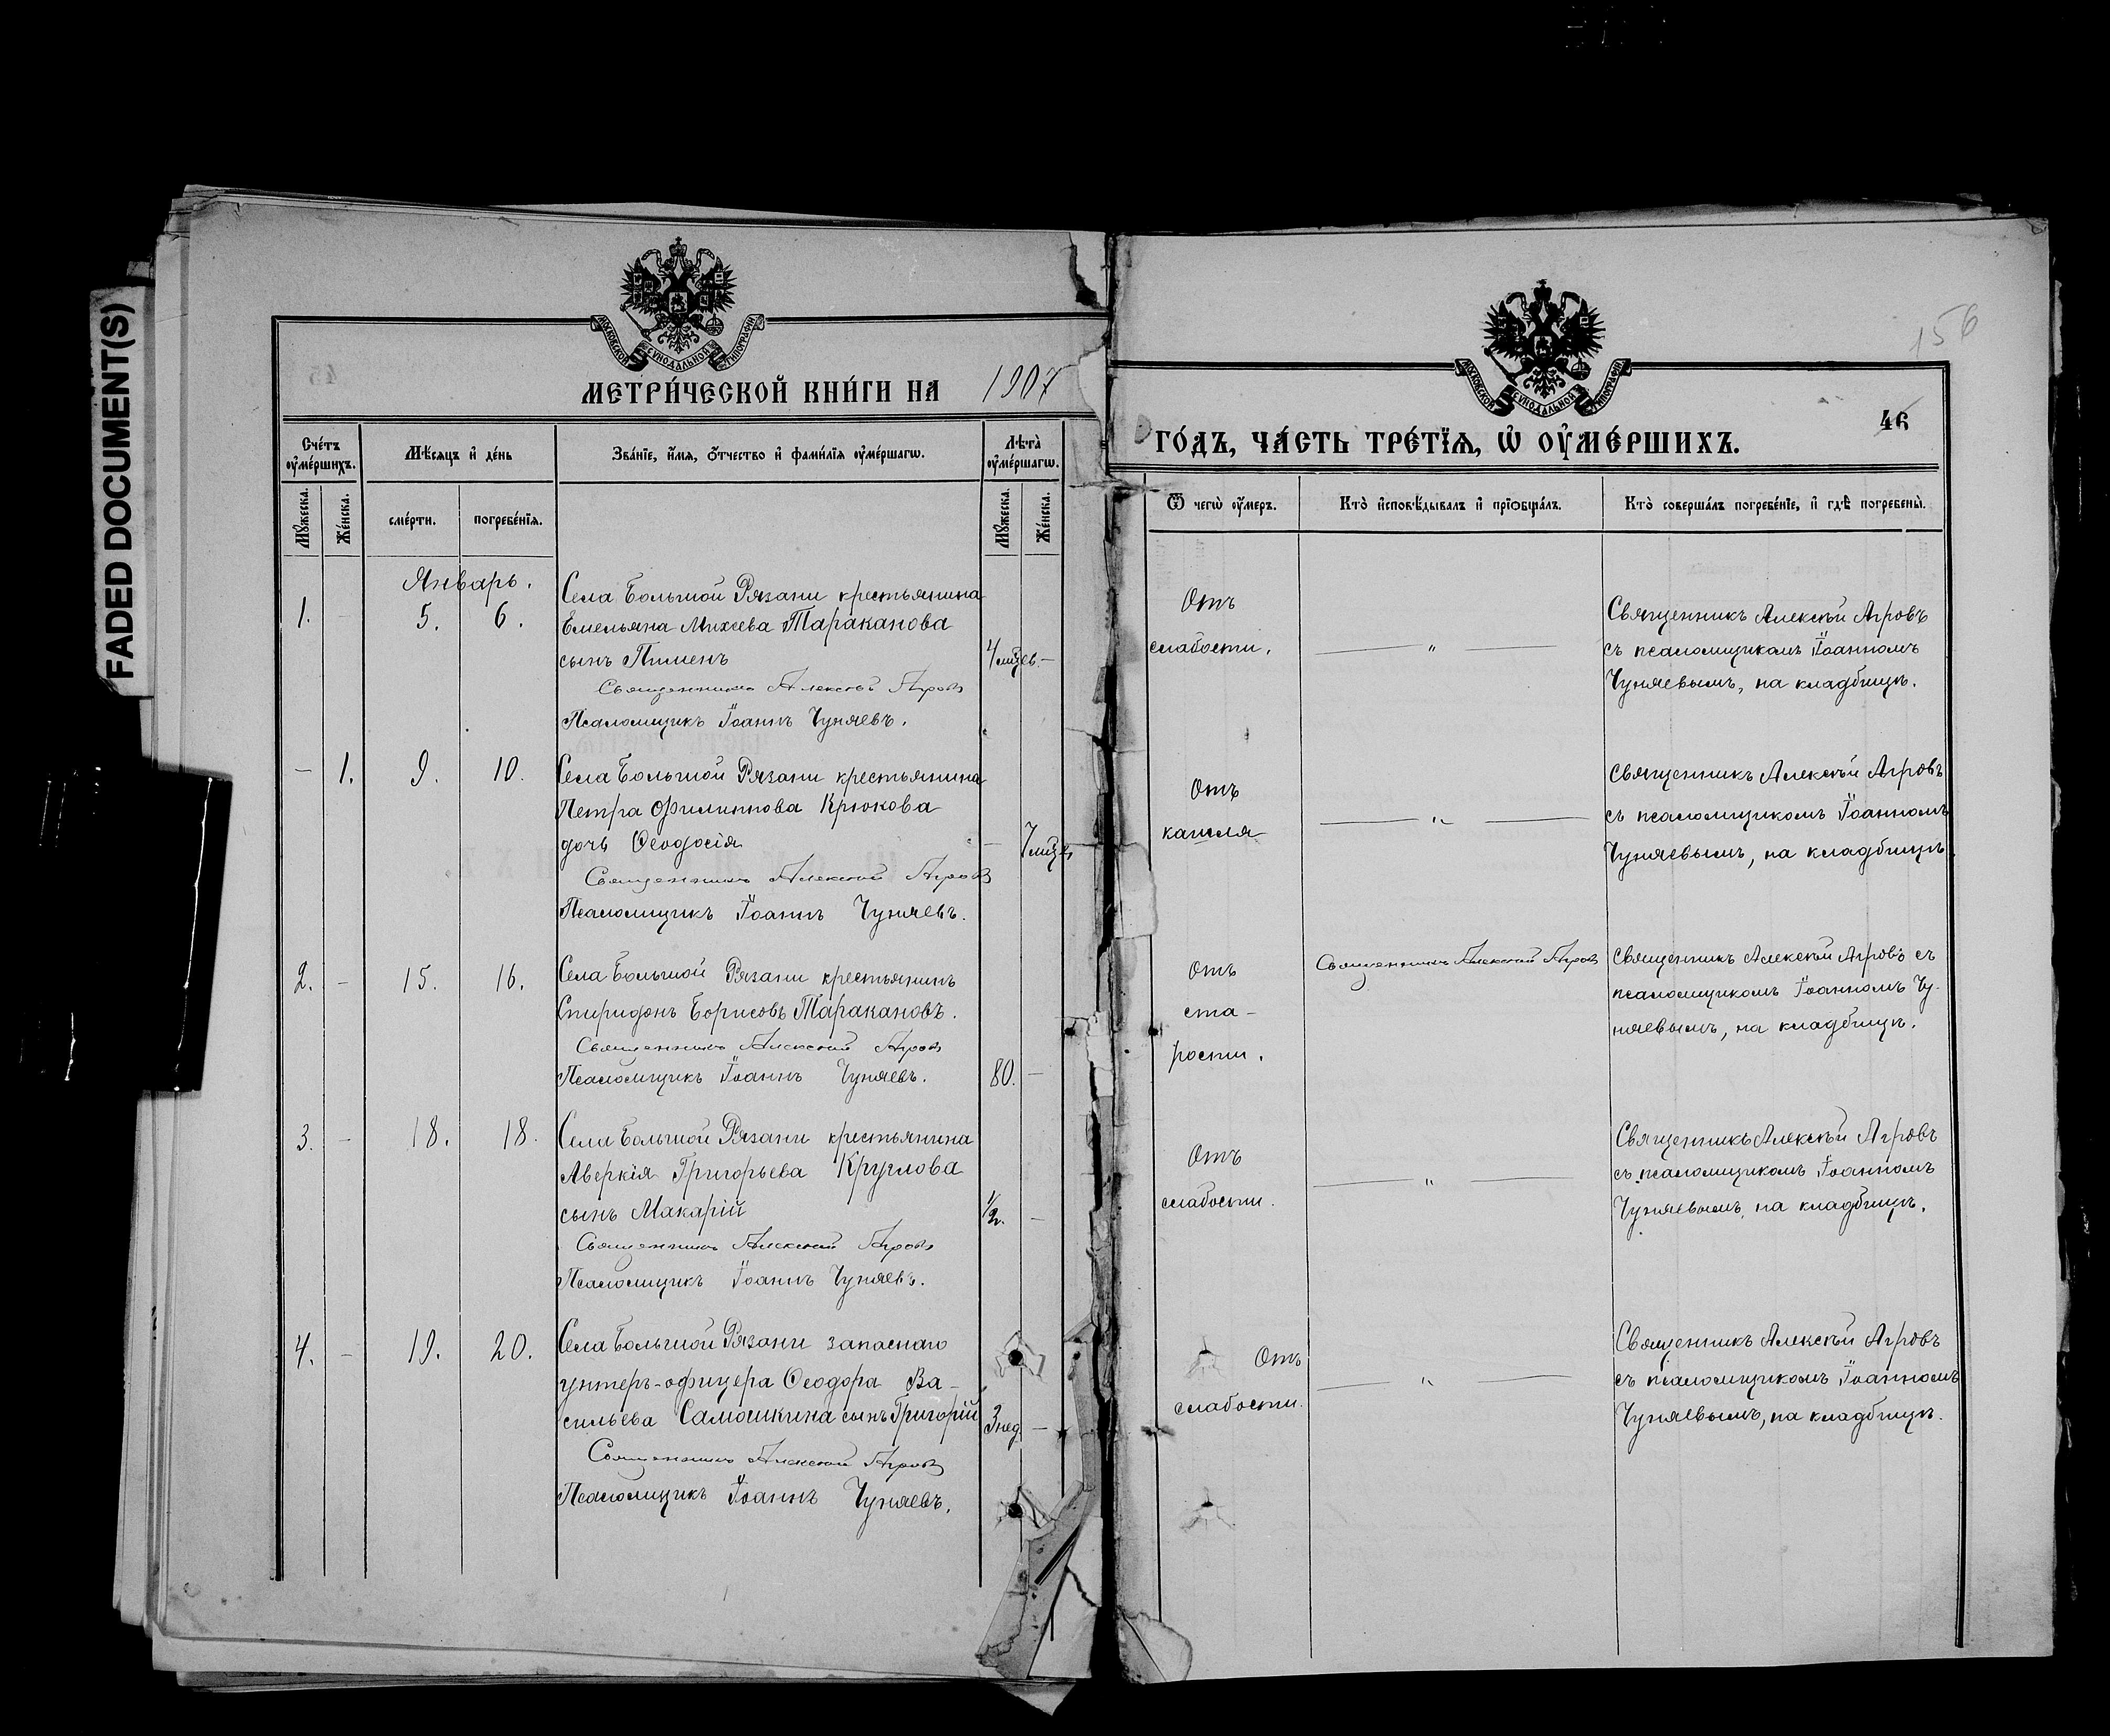 FADED DOCUMENT(S)
МОСКОВСКОЙ СѴНОДАЛЬНОЙ ТИПОГРАФІИ
МЕТРИ́ЧЕСКОЙ КНИ́ГИ НА 1907
Сче́тъ ᲂу҆ме́ршихъ.
Мѣ́сяцъ и҆ де́нь
Зва́нїе, и҆́мя, ѻ҆́тчество и҆ фами́лїя ᲂу҆ме́ршагѡ.
Лѣ̑та ᲂу҆ме́ршагѡ.
Мꙋ́жеска.
Же́нска.
сме́рти.
погребе́нїя.
Мꙋ́жеска.
Же́нска.
Январь.
1.
-
5.
6.
Села Большой Рязани крестьянина
Емельяна Михеева Тараканова
сынъ Пименъ
4 мѣсев. -
Священникъ Алексѣй Агровъ
Псаломщикъ Іоаннъ Чуняевъ.
-
1.
9.
10.
Села Большой Рязани крестьянина
Петра Филиппова Крюкова
дочь Ѳеодосія
-
7 мѣс.
Священникъ Алексѣй Агровъ
Псаломщикъ Іоаннъ Чуняевъ.
2.
-
15.
16.
Села Большой Рязани крестьянинъ
Спиридонъ Борисовъ Таракановъ.
Священникъ Алексѣй Агровъ
Псаломщикъ Іоаннъ Чуняевъ.
80.
-
3.
-
18.
18.
Села Большой Рязани крестьянина
Аверкія Григорьева Круглова
сынъ Макарій
1/2.
-
Священникъ Алексѣй Агровъ
Псаломщикъ Іоаннъ Чуняевъ.
4.
-
19.
20.
Села Большой Рязани запаснаго
унтеръ-офицера Ѳеодора Ва-
сильева Самошкина сынъ Григорій
3 нед
-
Священникъ Алексѣй Агровъ
Псаломщикъ Іоаннъ Чуняевъ.
156
МОСКОВСКОЙ СѴНОДАЛЬНОЙ ТИПОГРАФІИ
46
ГО́ДЪ, ЧА́СТЬ ТРЕ́ТЇѦ, Ѡ҆ ОУ҆МЕ́РШИХЪ.
Ѿ чегѡ̀ ᲂу҆́меръ.
Кто̀ и҆сповѣ́дывалъ и҆ прїѻбща́лъ.
Кто̀ соверша́лъ погребе́нїе, и҆ гдѣ̀ погребены̀.
Отъ
слабости.
"
Священникъ Алексѣй Агровъ
съ псаломщикомъ Іоанномъ
Чуняевымъ, на кладбищѣ.
Отъ
кашля
"
Священникъ Алексѣй Агровъ
съ псаломщикомъ Іоанномъ
Чуняевымъ, на кладбищѣ
Отъ
ста-
рости.
Священникъ Алексѣй Агровъ
Священникъ Алексѣй Агровъ съ
псаломщикомъ Іоанномъ Чу-
няевымъ, на кладбищѣ.
Отъ
слабости.
"
Священникъ Алексѣй Агровъ
съ псаломщикомъ Іоанномъ
Чуняевымъ, на кладбищѣ.
Отъ
слабости.
"
Священникъ Алексѣй Агровъ
съ псаломщикомъ Іоанномъ
Чуняевымъ, на кладбищѣ.